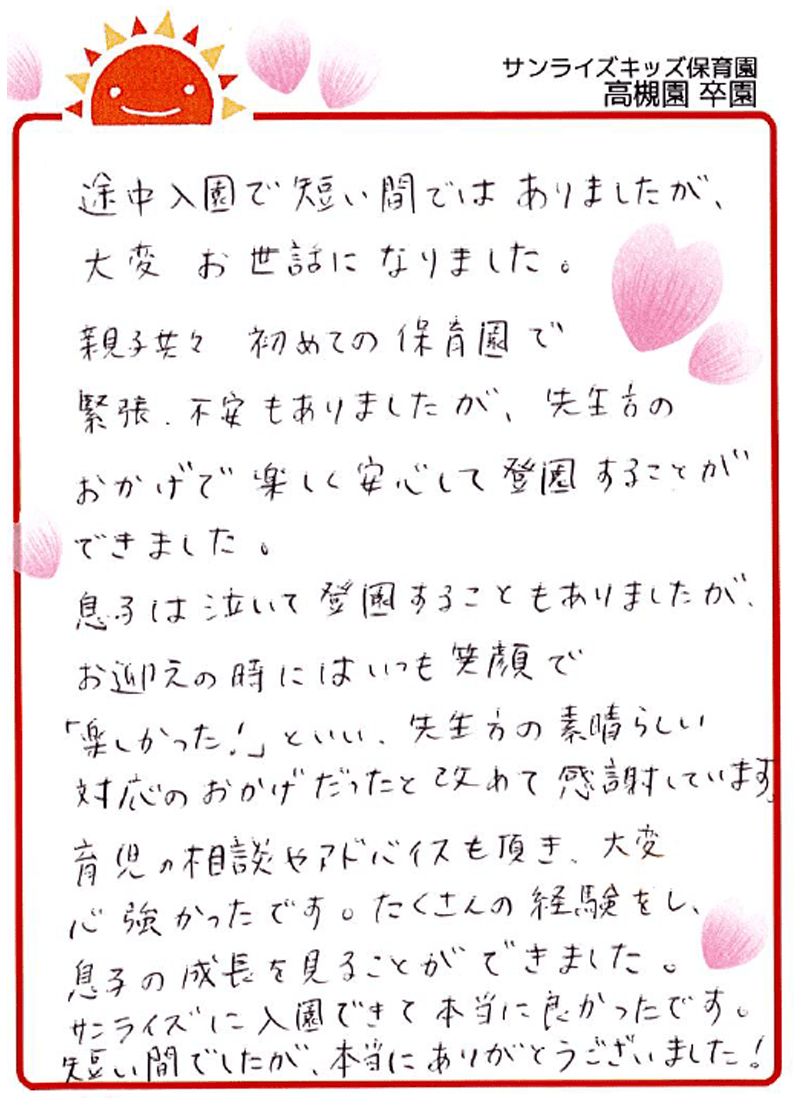 サンライズキッズ保育園
高槻園 卒園
途中入園で短い間ではありましたが、
大変 お世話になりました。
親子共々 初めての保育園で
緊張、不安もありましたが、先生方の
おかげで楽しく安心して登園することが
できました。
息子は泣いて登園することもありましたが、
お迎えの時にはいつも笑顔で
「楽しかった!」といい、先生方の素晴らしい
対応のおかげだったと改めて感謝しています。
育児の相談やアドバイスも頂き、大変
心強かったです。たくさんの経験をし、
息子の成長を見ることができました。
サンライズに入園できて本当に良かったです。
短い間でしたが、本当にありがとうございました!